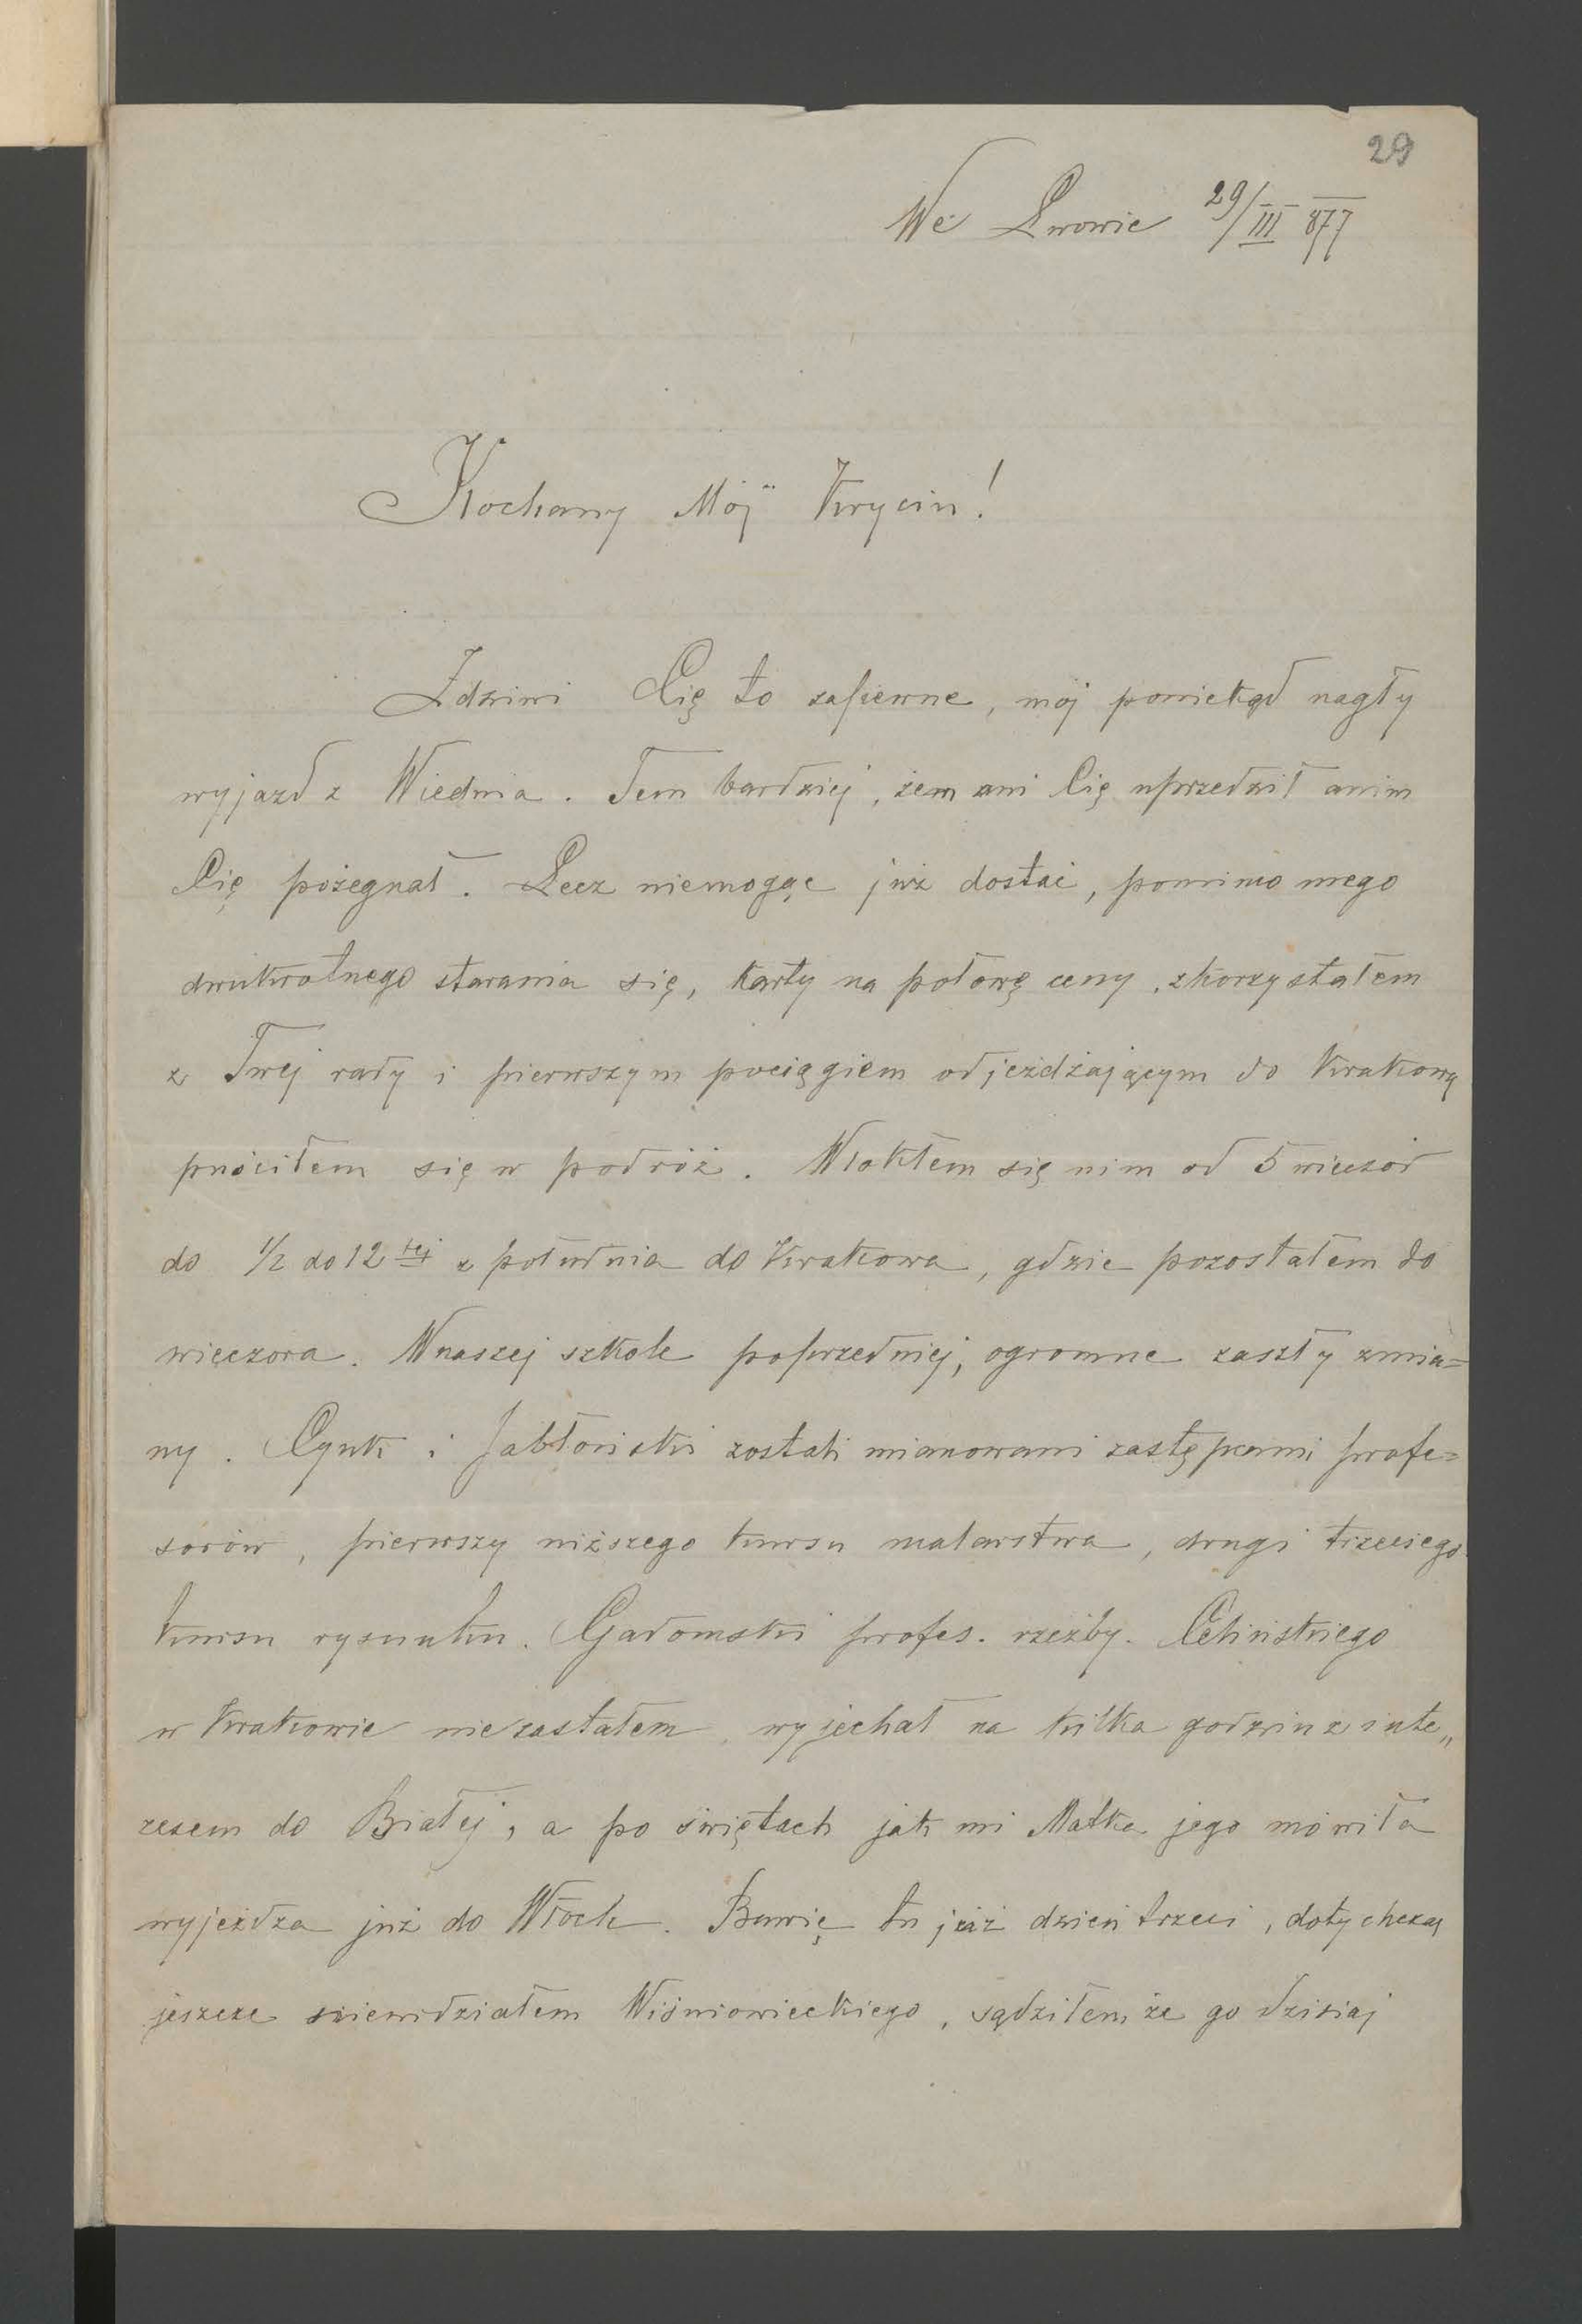 29
We Lwowie 29/III 877
Kochany Mój Kryciu!
Zdziwi Cię to zapewne, mój poniekąd nagły
wyjazd z Wiednia. Tem bardziej, żem ani Cię uprzedził anim
Cię pożegnał. Lecz niemogąc już dostać, pomimo mego
dwukrotnego starania się, karty na połowę ceny, zkorzystałem
z Twej rady i pierwszym pociągiem odjeżdżającym do Krakowa
puściłem się w podróż. Wlokłem się nim od 5 wieczór
do 1/2 do 12tej z południa do Krakowa, gdzie pozostałem do
wieczora. Wnaszej szkole poprzedniej, ogromne zaszły zmia=
ny. Cynk i Jabłoński zostali mianowani zastępcami profe=
sorów, pierwszy niższego kursu malarstwa, drugi trzeciego
kursu rysunku. Gadomski profes. rzeźby. Celińskiego
w Krakowie niezastałem, wyjechał na kilka godzin z inte„
resem do Białej, a po świętach jak mi Matka jego mówiła
wyjeżdza już do Włoch. Bawię tu już dzień trzeci, dotychczas
jeszcze niewidziałem Wiśniowieckiego, sądziłem że go dzisiaj